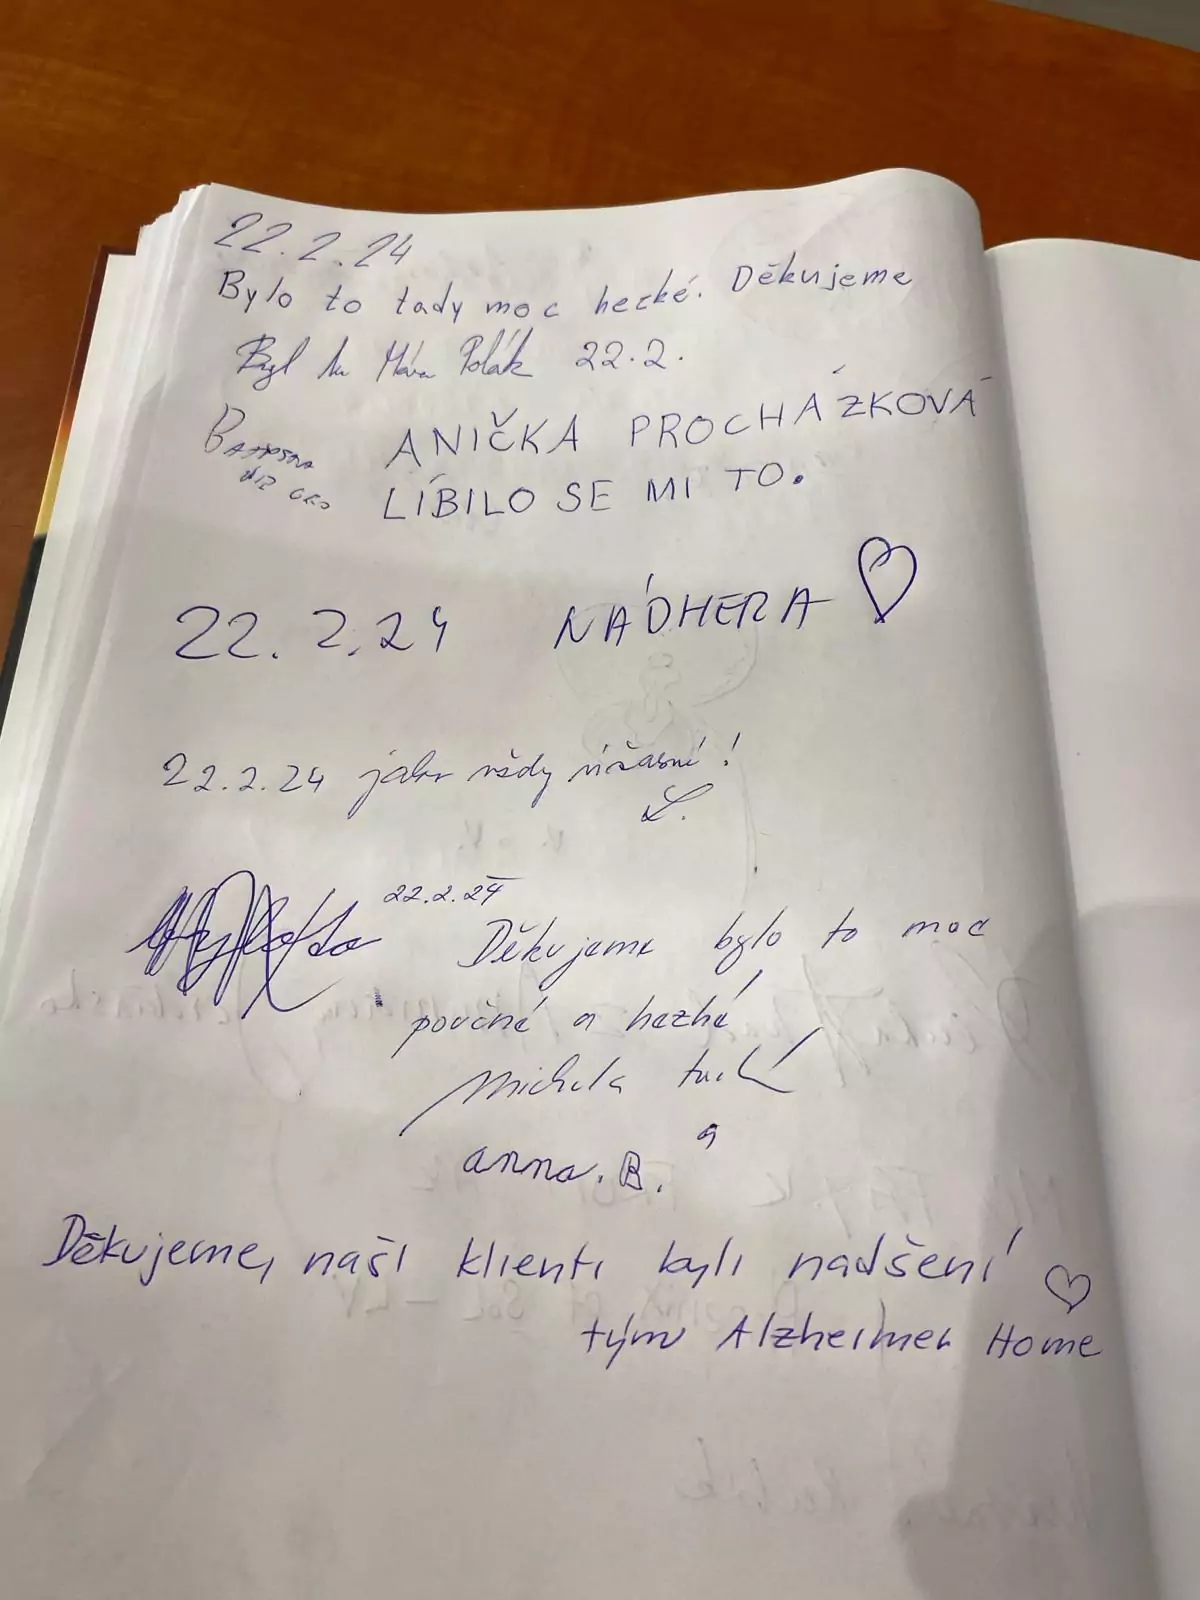 22.2.24
Bylo to tady moc hezké. Děkujeme
Byl tu Polák 22.2.
ANIČKA PROCHÁZKOVÁ
LÍBILO SE MI TO.
22.2.24 NÁDHERA
22.2.24 jako vždy úžasní!
22.2.24
Děkujeme bylo to moc
poučné a hezké
Michala
a
anna. B.
Děkujeme, naši klienti byli nadšení
tým Alzheimer Home